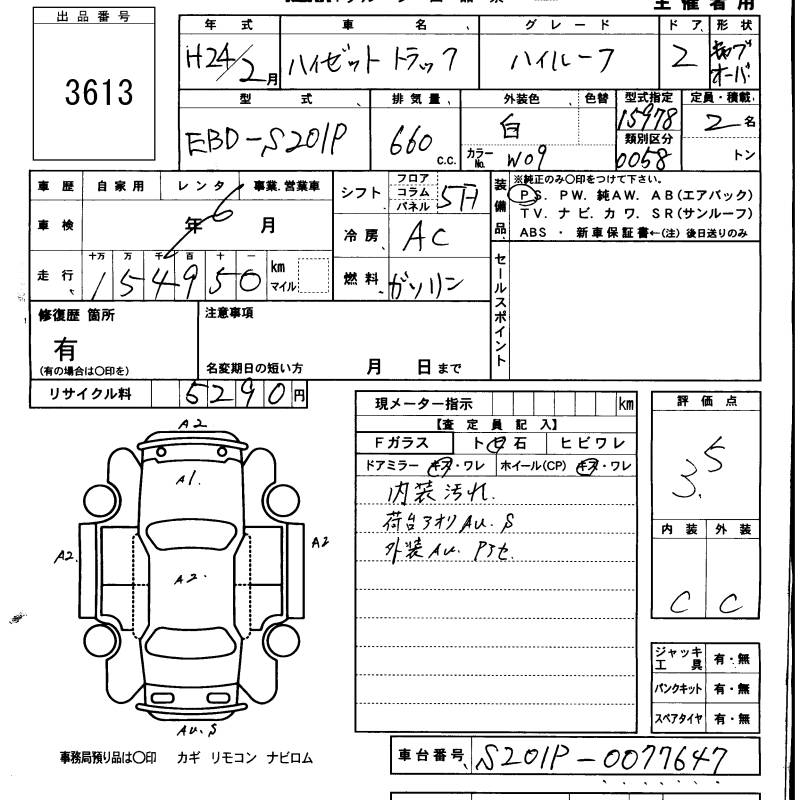 主催者用
出品番号
3613
年式 車名 グレード ドア 形状
H24/2月 ハイゼット トラック ハイルーフ 2 キャブオーバ
型式 排気量 外装色 色替 型式指定 定員・積載
EBD-S201P 660 C.C. 白 15978 2名
カラーNo. W09 類別区分 0058 トン
車歴 自家用 レンタ 事業.営業車 シフト フロア コラム パネル 5H 装備品
※純正のみ〇印をつけて下さい。
PS. PW. 純AW. AB(エアバック)
TV. ナビ. カワ. SR(サンルーフ)
ABS ・ 新車保証書←(注) 後日送りのみ
車検 年 6 月 冷房 AC
走行 十万 万 千 百 十 一 km マイル 燃料 ガソリン セールスポイント
154950
修復歴 箇所 注意事項
有
(有の場合は〇印を) 名変期日の短い方 月 日まで
リサイクル料 5290円
現メーター指示 km
【査定員記入】
Fガラス ト凹石 ヒビワレ
ドアミラー キズ・ワレ ホイール(CP) キズ・ワレ
内装汚れ.
荷台アオリ AU. S
外装AU. PJセ.
評価点
3.5
内装 外装
C C
ジャッキ工具 有・無
パンクキット 有・無
スペアタイヤ 有・無
A2
A1.
A2. A2
A2.
AU.S
事務局預り品は〇印 カギ リモコン ナビロム
車台番号 S201P-0077647